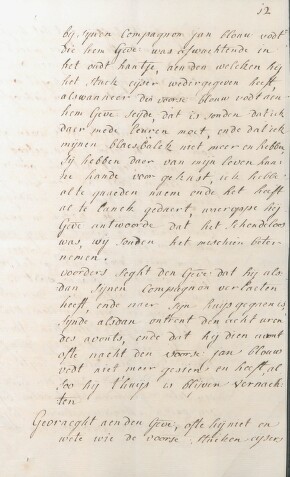 12
by synen Compagnon jan blauw vodt
die hem Geve was afwachtende in
het oudt hantje, aen den welcken hy
het stuck eyser wedergegeven heeft,
alswanneer die voorse blauw vodt aen
hem Geve seyde, dat is sonden dat ick
daer mede leuren moet, ende dat ick
mynen blaesbalck niet meer en hebbe
sy hebben daer van myn leven
de hande voor gekust, ick hebbe
alte goeden naem ende het heeft
al te lanck geduert, waer oppe hy
Geve antwoorde dat het
was, wy souden het misschien beter
nemen.
voorders seght den Geve dat hy als
dan synen Compagnon verlaeten
heeft, ende naer syn huys gegaen is
synde alsdan ontrent den acht uren
des avonts, ende dat hy dien avont
ofte nacht den voorse jan blauw
vodt niet meer gesien en heeft, al
soo hy t'huys is blyven vernach
ten
Gevraeght aen den Geve, ofte hy niet en
wete wie de voorse stucken eysers